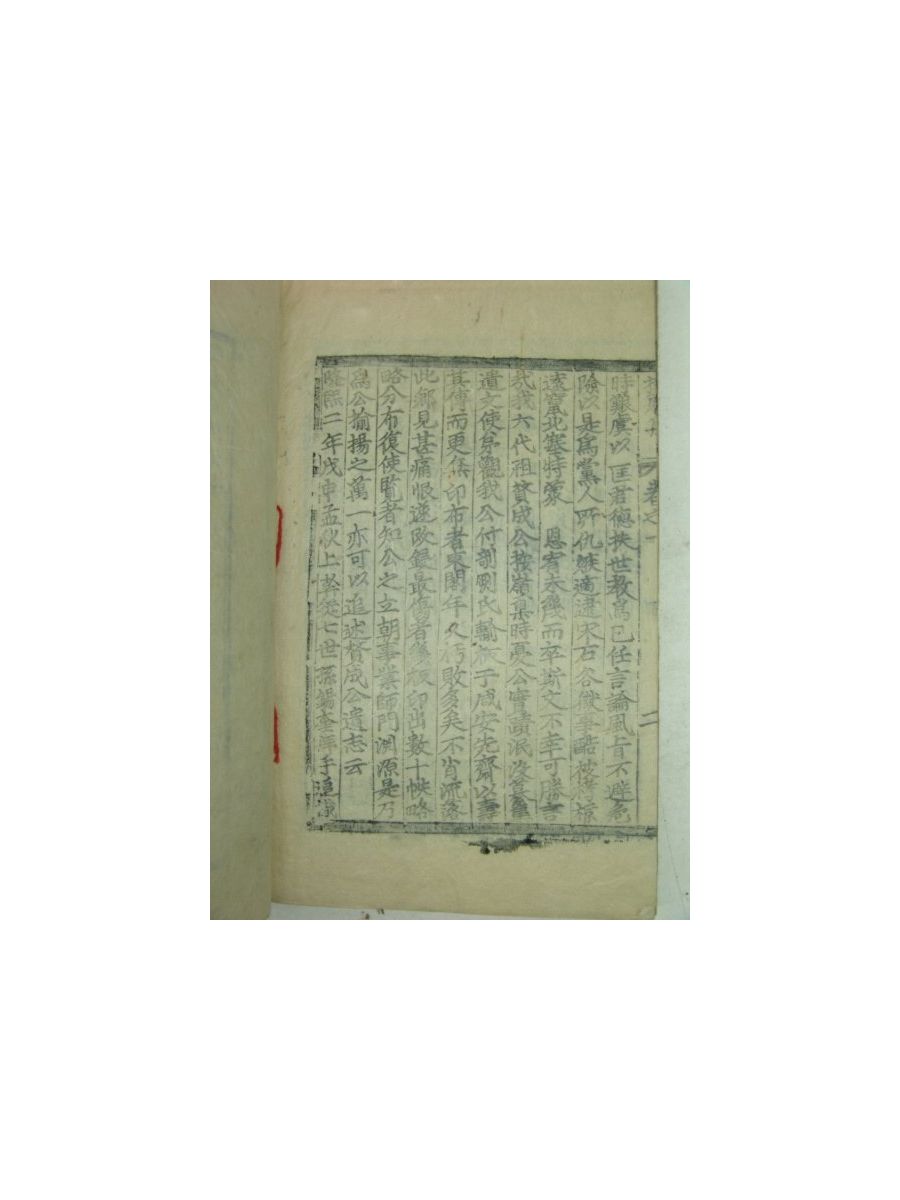 卷之一 二
時艱虞以匡君德扶世教爲己任言論風旨不避危
險以是爲黨人所仇嫉適逮宋石谷徵事酷被
遠竄北塞特蒙 恩宥未幾而卒斯文不幸可勝言
哉我六代祖贊成公按嶺臬時憂公實蹟泯沒
遺文使弟觀我公付剞劂氏輸板于咸安先齋以壽
其傳而更集印布者東閣年久朽敗多矣不肖流落
此鄕見甚痛恨遂改 最傷者幾板印出數十帙略
略分布復使覽者知公之立朝事業師門淵源是乃
爲公揄揚之萬一亦可以追述贊成公遺志云
隆熙二年戊申孟秋上 從七世孫錫奎 手追